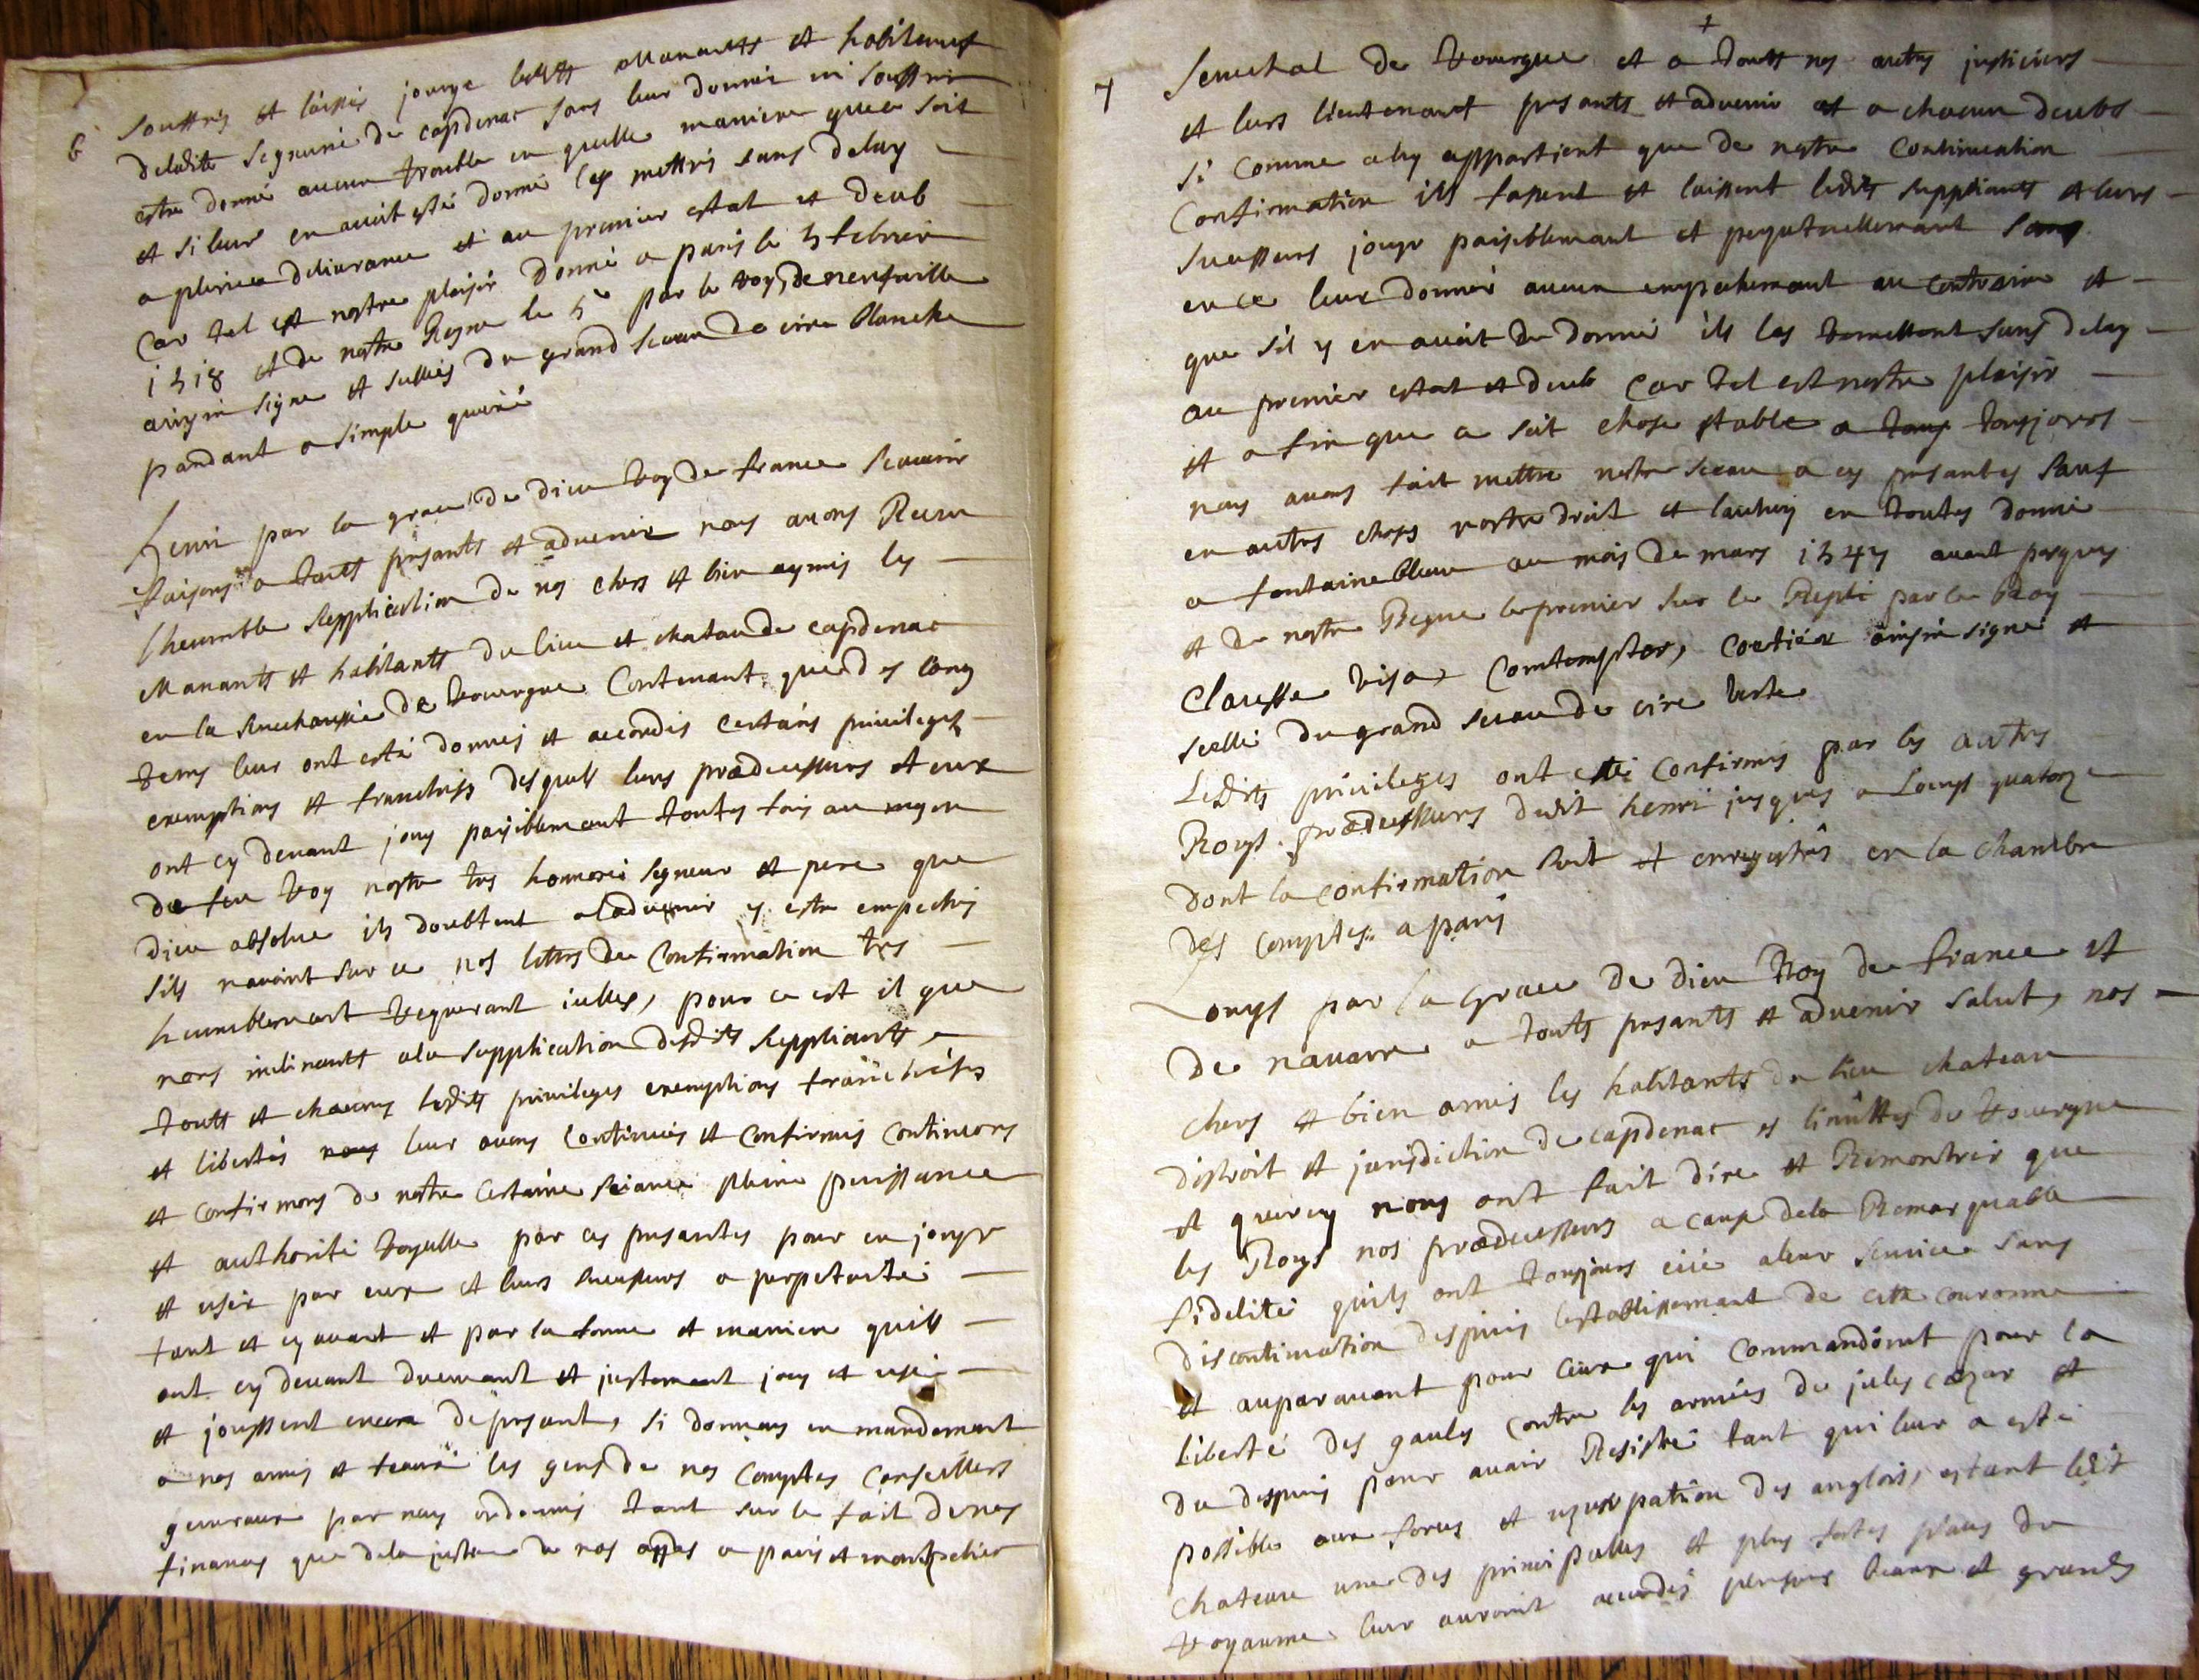 6
souffrés et laissés jouyr lesdits Manants et habitants
deladite segnurie de capdenac sans leur donner ni souffrir
estre donné aucun trouble en quelle maniere que ce soit
et si leur en avoit esté donné les mettrés sans delay
a pleine deliurance et au premier estat et deub
Car tel est nostre plaisir Donné a paris le 5 febrier
1518 et de nostre Regne le 5e par le roy, de neufuille
ainsin signé et sellés du grand sceau de cire blanche
pandant a simple queüe
Henri par la grace de dieu roy de france sçauoir
faisons a touts presants et aduenir nous auons Receu
lheumble supplication de nos chers et bien aymés les
Manants et habitants du lieu et chatau de capdenac
en la senechaussée de rouergue Contenant que des long
tems leur ont esté donnés et accordés certains priuileges
exemptions et franchises desquels leurs prædecesseurs et eux
ont cy deuant jouy paisiblemant toutes fois au moyen
du feu roy nostre tres honnoré segneur et pere que
dieu absolue ils doubtent aladuenir y estre empechés
sils nauoint sur ce nos lettres de Confirmation tres
humblemant requerant icelles, pour ce est il que
nous inclinants ala supplication desdits suppliants
touts et chacuns lesdits priuileges exemptions franchises
et libertés nous leur auons Continués et Confirmés continuons
et confirmons de nostre certaine sciance pleine puissance
et authorité royalle par ces presantes pour en jouyr
et user par eux et leurs successeurs a perpetuité
tant et cy auant et par la forme et maniere quils
ont cy deuant deuemant et justemant jouy et usé
et jouyssent encore de presant, si donnons en mandemant
a nos amés et feaux les gens de nos Comptes Conseillers
generaux par nous ordonnés tant sur le fait de nos
finances que dela justice de nos aydes a paris et montpelier
7
Senechal de rouergue et a touts nos autres justiciers
et leurs lieutenants presants et aduenir et a chacun deubs
si comme a luy appartient que de nostre Continuation
Confirmation ils fassent et laissent lesdits suppliants et leurs
successeurs jouyr paisiblemant et perpetuellemant sans
en ce leur donner aucun empechemant au contraire et
que sil y en auoit de donné ils les remettent sans delay
au premier estat et deub Car tel est nostre plaisir
et a fin que ce soit chose stable a tousjours
nous auons fait mettre nostre sceau a ces presantes sauf
en autres choses nostre droit et lautruy en toutes donné
a fontainebleau au mois de mars 1547 auant pasques
et de nostre Regne le premier sur le Repli par le Roy
Clausse visa, Contemptor, Coetier ainsin signé et
scellé du grand sceau de cire verte
Lesdits priuileges ont esté confirmés par les autres
Roys prædecesseurs dudit henri jusques a Louys quatorze
dont la confirmation suit et enregistrés en la chambre
des comptes a paris
Louys par la grace de dieu Roy de france et
de nauarre a touts presants et aduenir salut, nos
chers et bien amés les habitants du lieu chateau
distroit et jurisdiction de capdenac es limittes de rouergue
et quercy nous ont fait dire et Remontrer que
les Roys nos prædecesseurs a cause dela Remarquable
fidelité quils ont tousjours eüe aleur seruice sans
discontinuation despuis lestablissemant de cette couronne
et auparauant pour ceux qui commandoint pour la
liberté des gaules contre les armées de jules cæzar et
du despuis pour auoir Resisté tant qui leur a esté
possible aux forces et uzurpation des anglois, estant ledit
chateau une des principalles et plus fortes places du
royaume leur auroint accordés plusieurs beaux et grands